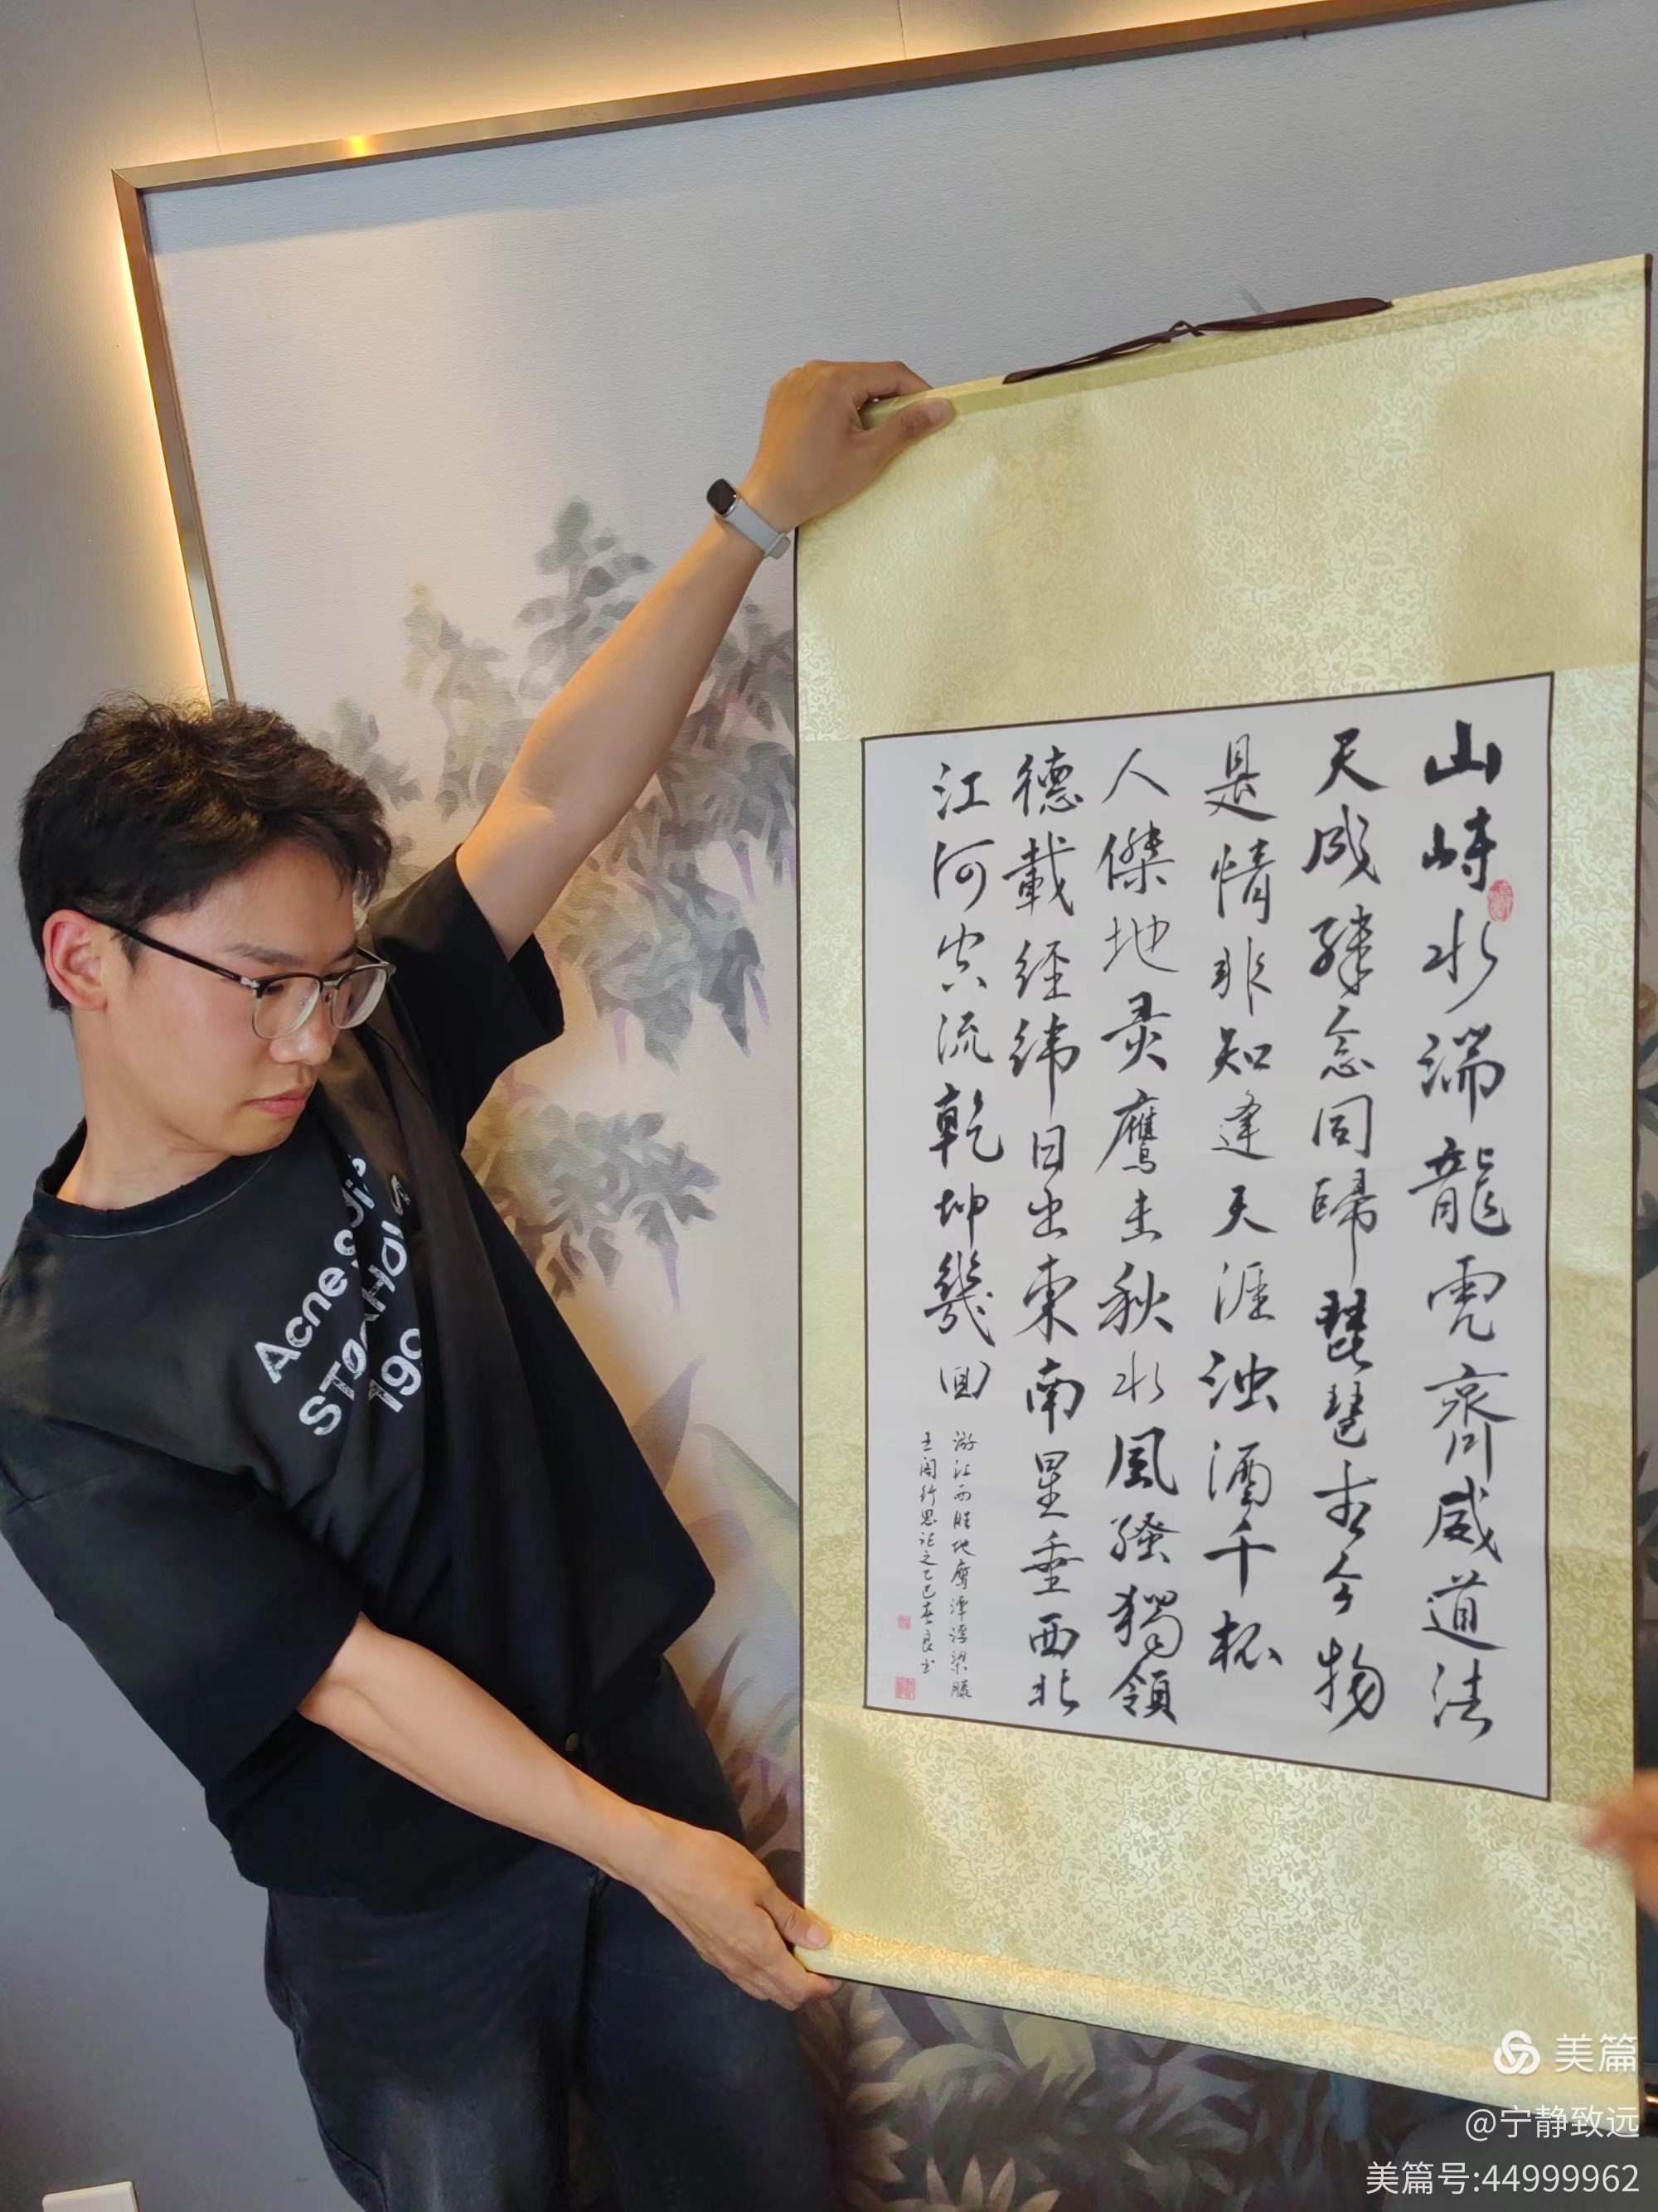 山峙水湍龍虎齊威道法
天成殊念同歸琵琶古今物
是情非知逢天涯浊酒千杯
人傑地灵鷹击秋水風騷獨領
德載經緯日出東南星垂西北
江河空流乾坤幾回
游江西胜地鹰潭浮梁滕
王阁行思记之乙巳春良书
Acne
美篇
@宁静致远
美篇号:44999962